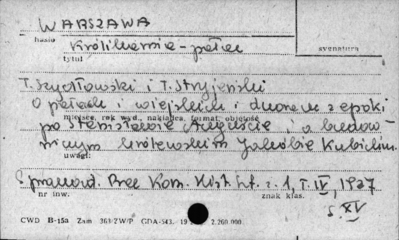 WARSZAWA
hasło
Królikarnia - pałac
sygnatura
tytuł
T. Szydłowski i T. Stryjeński
O pałacach wiejskich i dworach z epoki
miejsce, rok wyd., nakładca, format, objętość
po Stanisławie Auguście i o budow-
niczym królewskim Jakóbie Kubickim
uwagi:
Sprawozd. Kom. Hist. Szt. z. 1, T. IV, 1927
nr inw.
znak klas.
s. XV
CWD B-15a Zam 363/2W/P GDA-543. 19 2.260.000